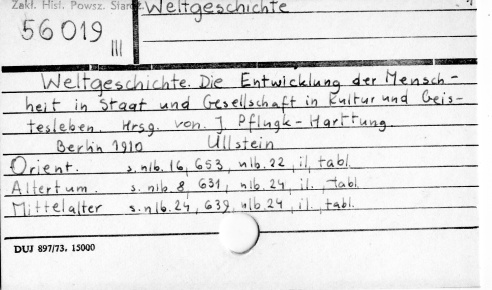 Zakł. Hist. Powsz. Staroż.
Weltgeschichte
56019
III
Weltgeschichte. Die Entwicklung der Mensch-
heit in Staat und Gesellschaft in Kultur und Geis-
tesleben. Hrsg. von. J Pflugk-Harttung
Berlin 1910 Ullstein
Orient. s. nlb. 16, 653, nlb. 22, il, tabl.
Altertum. s. nlb. 8, 631, nlb. 24, il., tabl.
Mittelalter s. nlb. 24, 639, nlb. 24, il., tabl.
DUJ 897/73. 15000